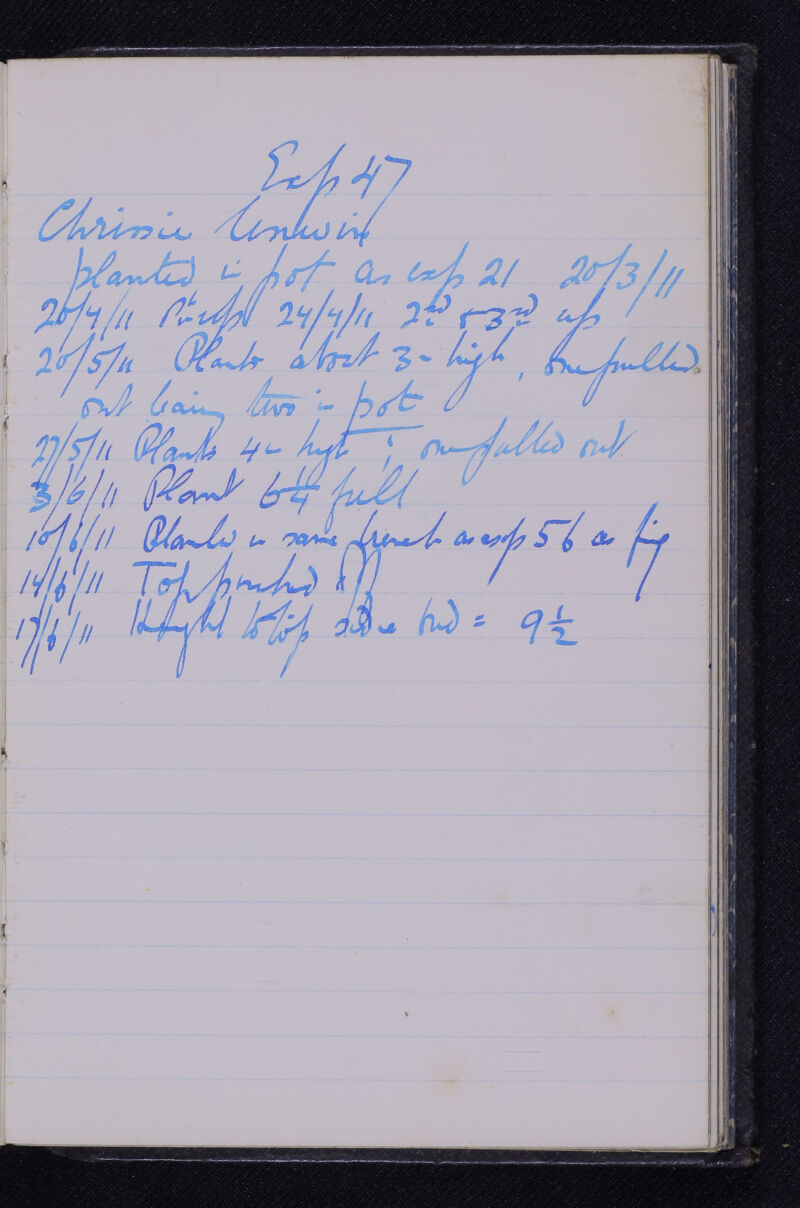 Exp 47
Chrissie Unwin
planted in pot as exp 21 20/3/11
20/4/11 1st up 24/4/11 2nd & 3rd up
20/5/11 Plants about 3in high, one pulled
out leaving two in pot
27/5/11 Plants 4in high; one pulled out
3/6/11 Plant 6 1/4 full
10/6/11 Planted in same trench as exp 56 as fig
14/6/11 Top pinched off
17/6/11 Height to top side bud = 9 1/2